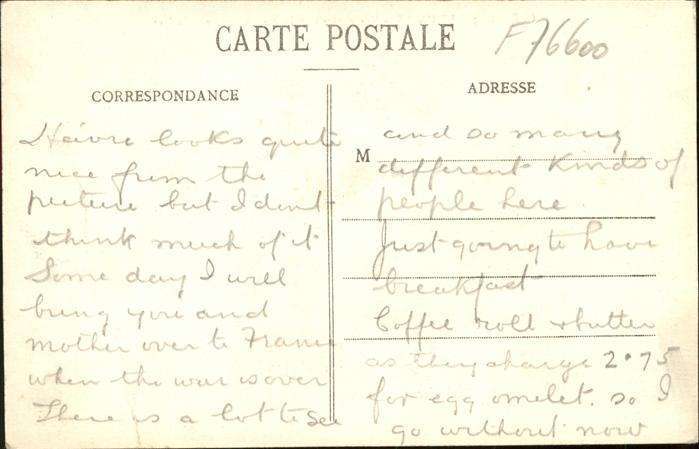 CARTE POSTALE
F76600
CORRESPONDANCE
ADRESSE
Havre looks quite
nice from the
picture but I dont
think much of it
Some day I will
bring you and
mother over to France
when the war is over
There is a lot to see
M
and so many
different kinds of
people here.
Just going to have
breakfast
Coffee roll & butter
as they charge 2.75
for egg omelet. so I
go without now